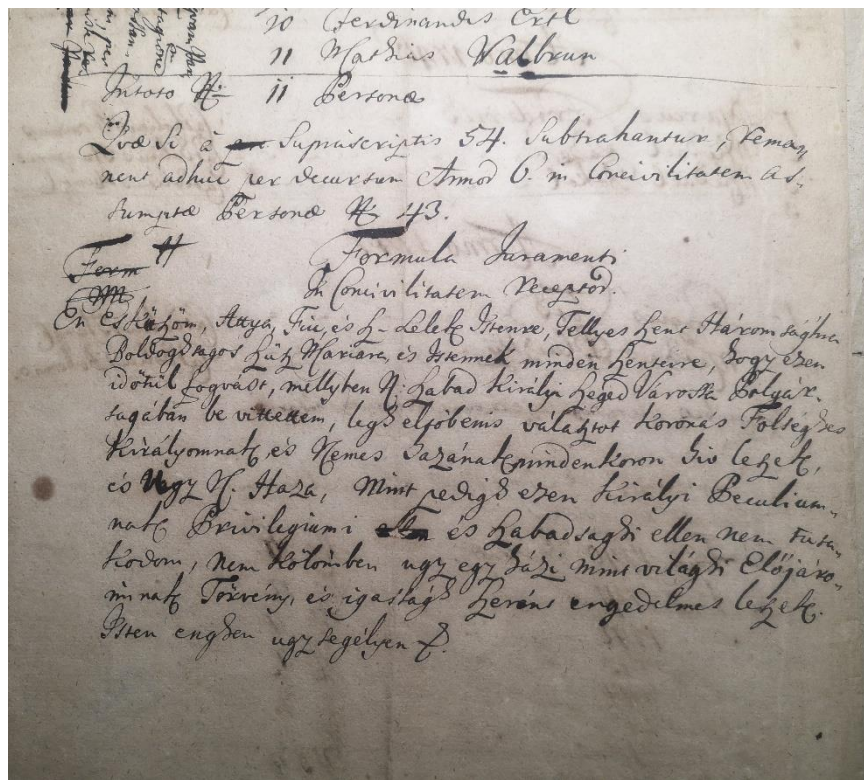 10 Ferdinandus Ertl
11 Mathias Valbrun
In toto N 11 Personæ
Qvæ Si à Supràscriptis 54. Subtrahantur, rema,,
nent adhuc per decursum Annor 6. in Concivilitatem as,,
sumptæ Personæ N 43.
Formula Juramenti
In Concivilitatem receptor.
En Esküszöm, Attya, Fiu, és Sz. Lélek Istenre, Tellyes Szent Háromsághra
Boldogságos Szűz Mariára, és Istennek minden Szenteire, hogy ezen
időtül fogvást, mellyben N. Szabad Királyi Szeged Varossa Polgár,,
ságában be vittettem, legh elsőbenis választot Koronás Fölséghes
Királyomnak, és Nemes Hazának mindenkoron hiv leszek,
és Ugy N. Haza, Mint pedigh ezen Királyi Peculium,,
nak Privilegiumi és Szabadsaghi ellen nem tusa,,
kodom, nem külömben ugy egyházi mint világhi Előjáró,,
imnak Törvény, és igasságh szerént engedelmes leszek.
Isten enghem ugy segélyen